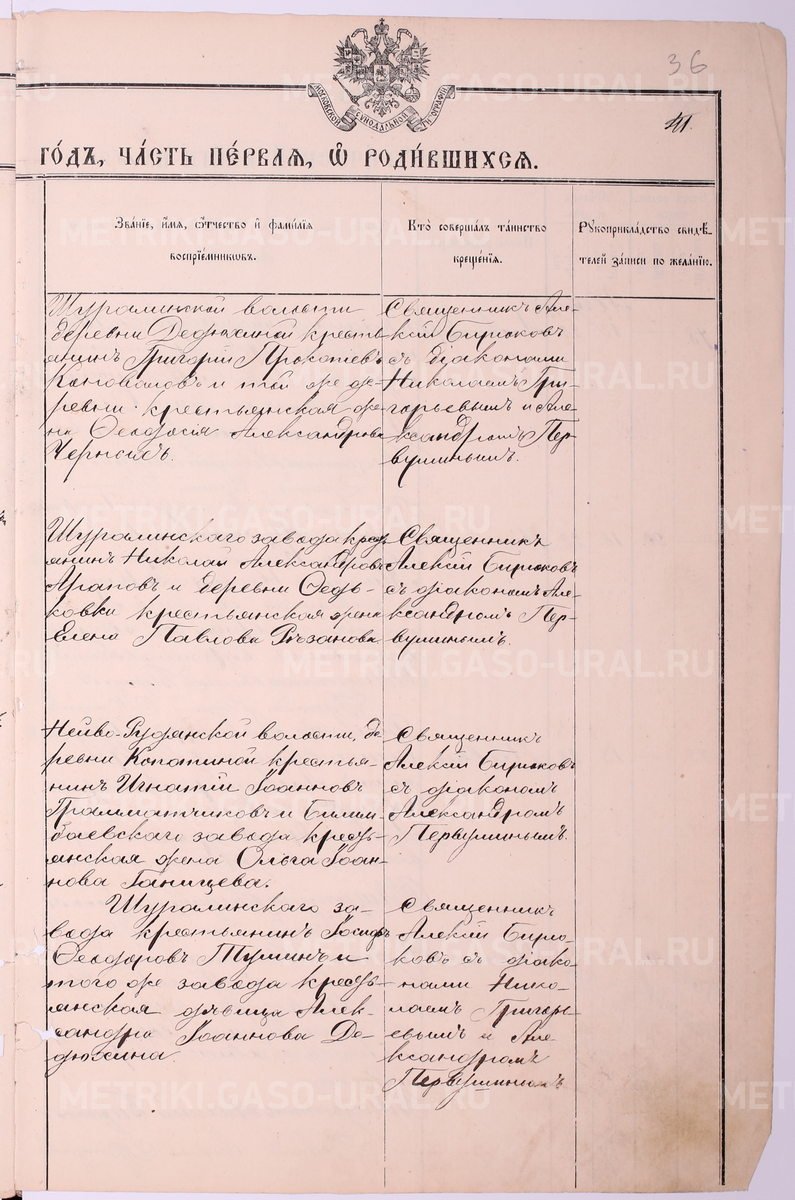 36
41.
МОСКОВСКОЙ СѴНОДАЛЬНОЙ ТИПОГРАФІИ
ГО́ДЪ, ЧА́СТЬ ПЕ́РВАѦ, Ѡ҆ РОДИ́ВШИХСѦ.
Зва́нїе, и҆́мѧ, ѻ҆́тчество и҆ фами́лїѧ
воспрїе́мникωвъ.
Кто̀ соверша́лъ та́инство
креще́нїѧ.
Рꙋкоприкла́дство свидѣ́-
телей за́писи по жела́нїю.
Шуралинской волости
деревни Дедюхиной кресть
янинъ Григорій Прокопьевъ
Коноваловъ и той же де
ревни крестьянская же
на Ѳеодосія Александрова
Черныхъ.
Священникъ Але-
ксій Бирюковъ
съ діаконами
Николаемъ Гри-
горьевымъ и Але
ксандромъ Пер-
вушинымъ.
Шуралинскаго завода крест
янинъ Николай Александровъ
Араповъ и деревни Ѳедь-
ковки крестьянская жена
Елена Павлова Рѣзанова
Священникъ
Алексій Бирюковъ
съ діакономъ Але
ксандромъ Пер-
вушинымъ.
Нейво-Рудянской волости, де
ревни Копотиной крестья-
нинъ Игнатій Іоанновъ
Грамматчиковъ и Билим-
баевскаго завода кресть-
янская жена Ольга Іоан-
нова Ганицева.
Священникъ
Алексій Бирюковъ
съ діакономъ
Александромъ
Первушинымъ.
Шуралинскаго за-
вода крестьянинъ Іосифъ
Ѳеодоровъ Тушинъ и
того же завода кресть-
янская дѣвица Алек-
сандра Іоаннова Де-
дюхина.
Священникъ
Алексій Бирю-
ковъ съ діако-
нами Нико-
лаемъ Григорь-
евымъ и Але
ксандромъ
Первушинымъ
METRIKI.GASO-URAL.RU